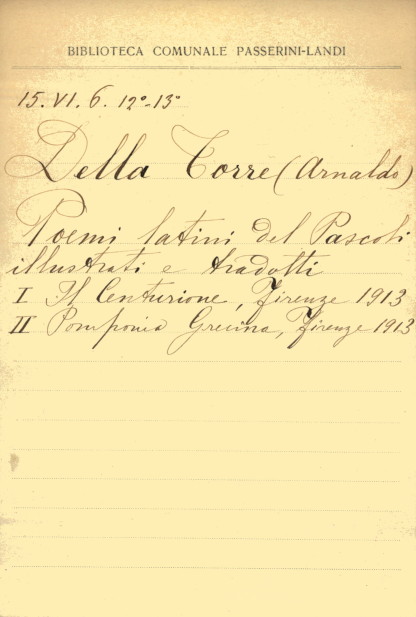 BIBLIOTECA COMUNALE PASSERINI-LANDI
15. VI. 6. 12°-13°
Della Torre (Arnaldo)
Poemi latini del Pascoli
illustrati e tradotti
I Il Centurione, Firenze 1913
II Pomponia Grecina, Firenze 1913